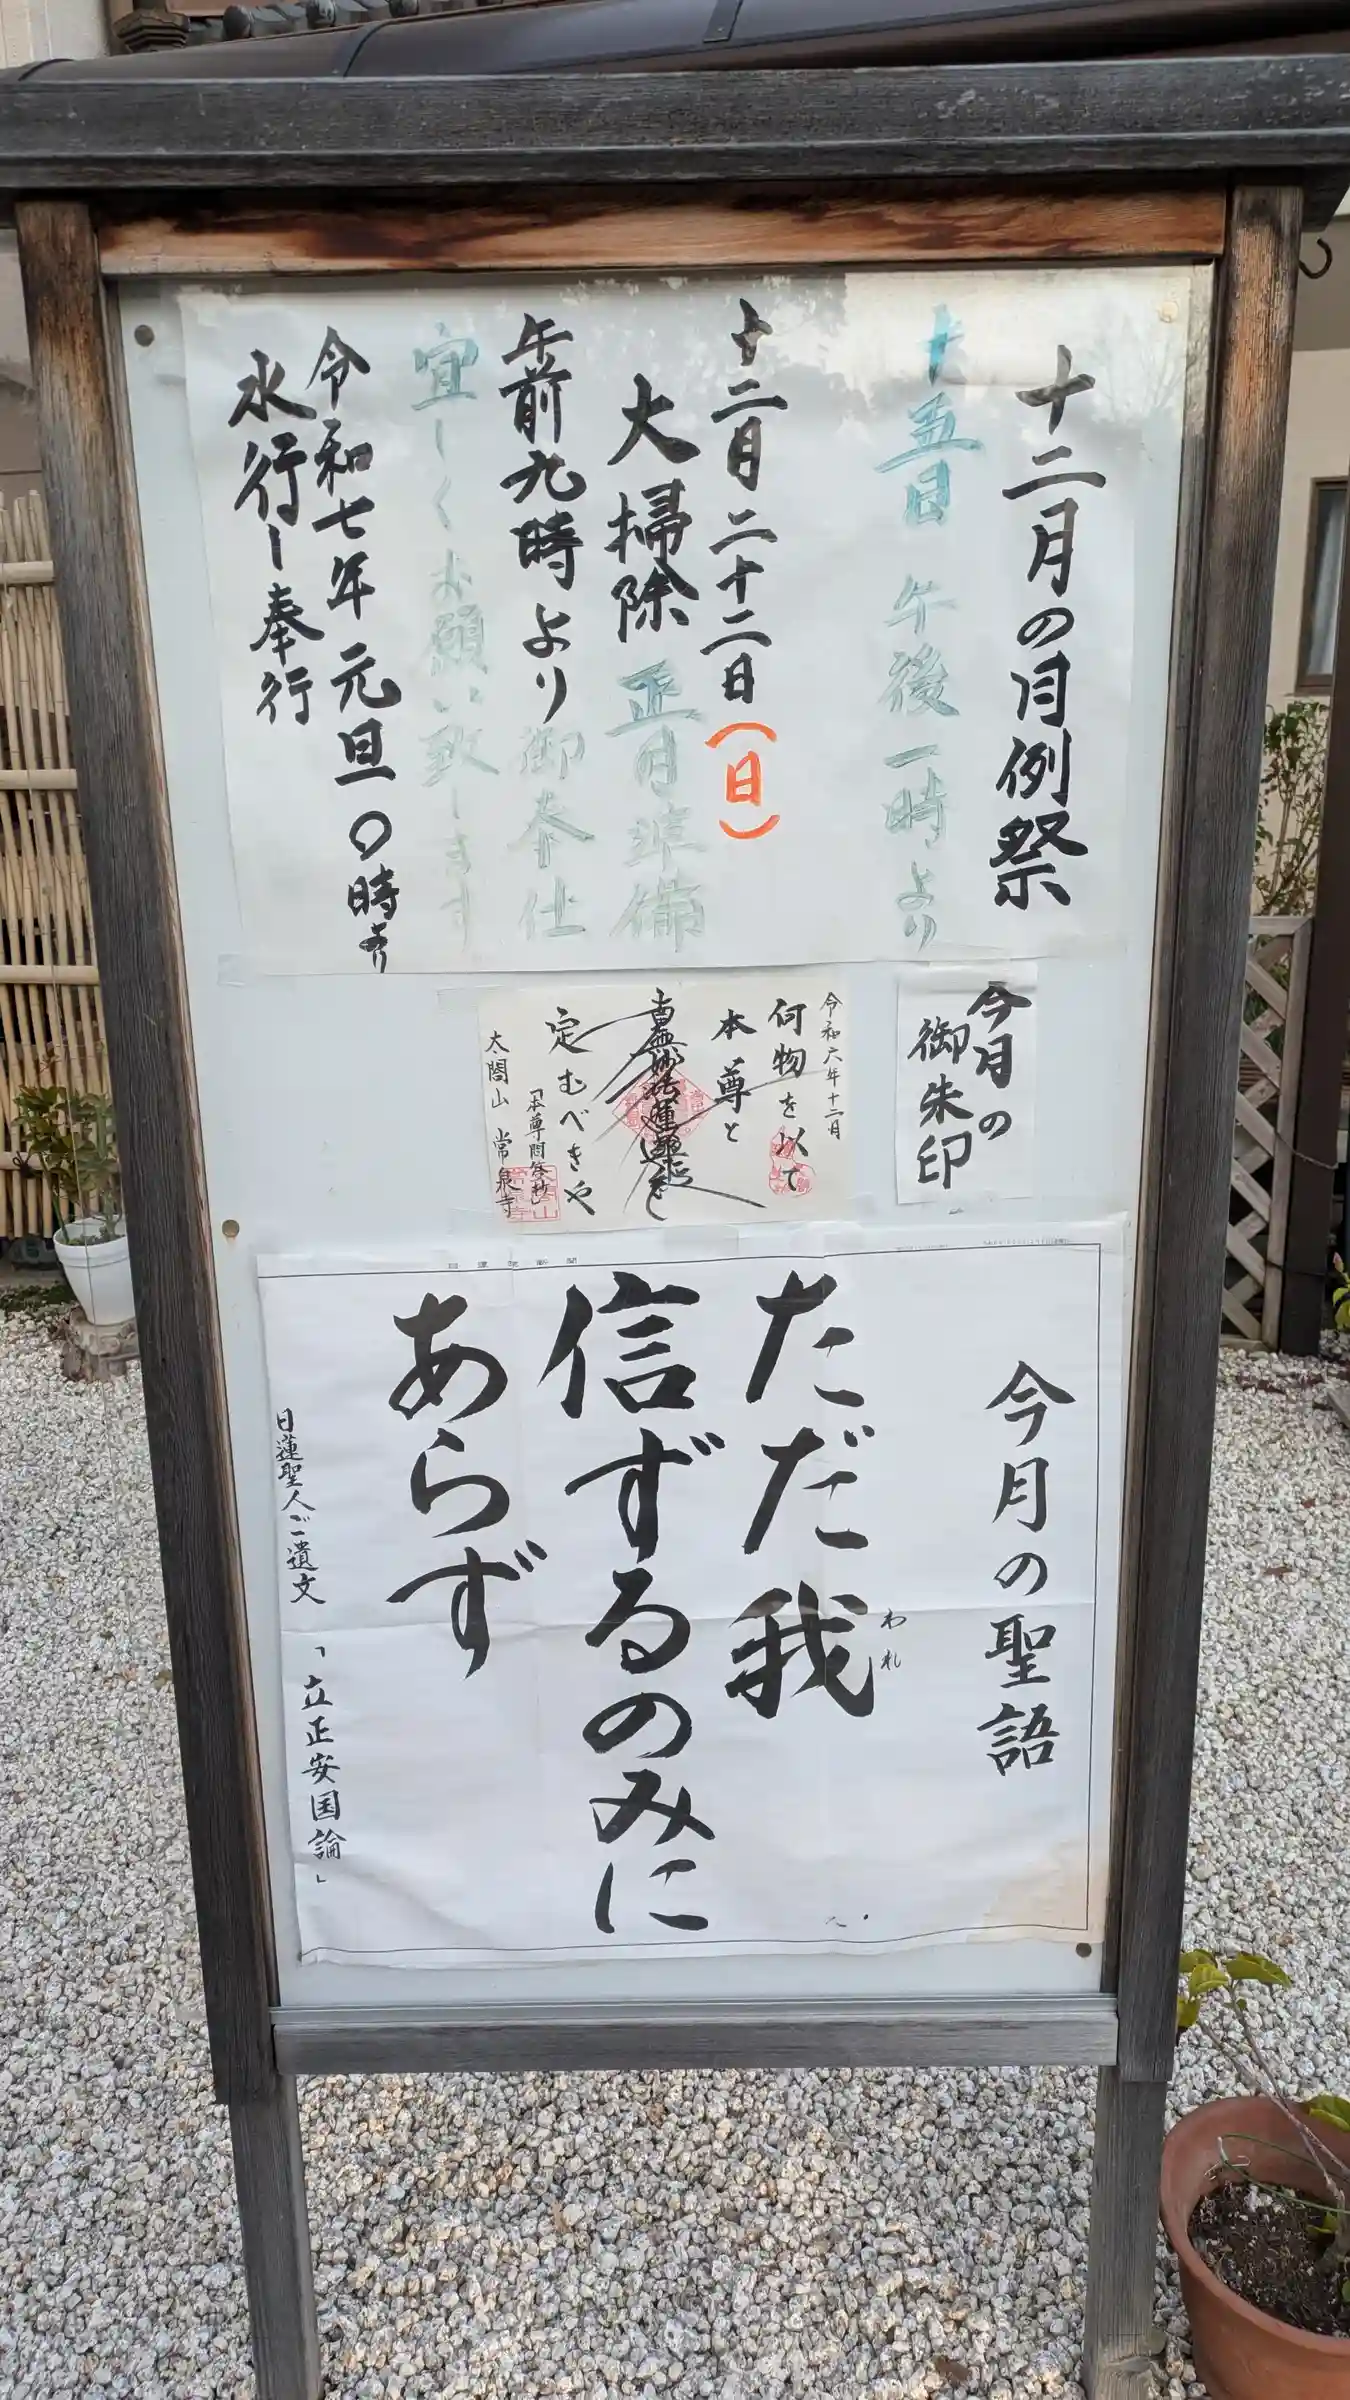 十二月の月例祭
十五日 午後一時より
十二月二十二日(日)
大掃除 正月準備
午前九時より御奉仕
宜しくお願い致します
令和七年元旦〇時より
水行し奉行
今月の
御朱印
令和六年十二月
何物を以て
本尊と
南無妙法蓮華経
定むべきや
「本尊問答抄」
太閤山 常泉寺
今月の聖語
ただ我
われ
信ずるのみに
あらず
日蓮聖人ご遺文 「立正安国論」